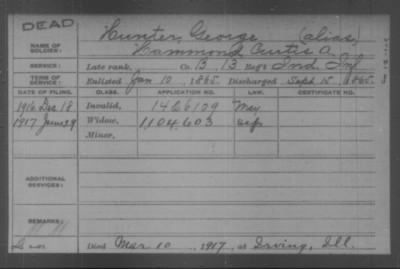 DEAD
NAME OF SOLDIER: Hunter, George (alias)
Hammond, Curtis A.
SERVICE: Late rank, Co. B, 13 Reg't Ind. Inf.
TERM OF SERVICE: Enlisted Jan 10, 1865. Discharged Sept 15, 1865.
DATE OF FILING. CLASS. APPLICATION NO. LAW. CERTIFICATE NO.
1916 Dec 18 Invalid, 1426109 May
1917 June 29 Widow, 1104,603
Minor,
ADDITIONAL SERVICES:
REMARKS:
Died Mar 10, 1917, at Irving, Ill.